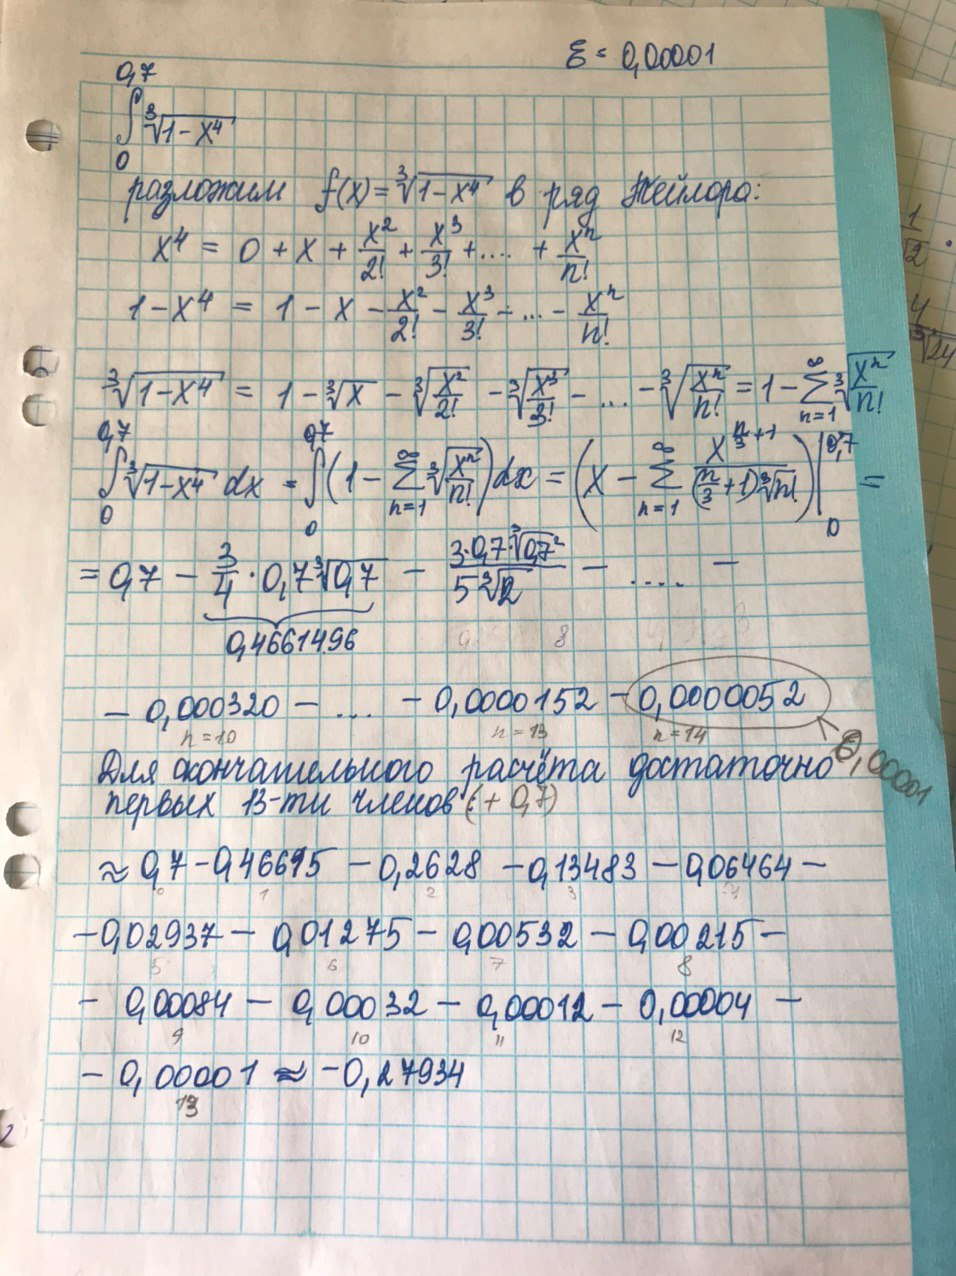 ε = 0,00001
∫₀^0,7 ∛(1-x⁴)
разложим f(x) = ∛(1-x⁴) в ряд Тейлора:
x⁴ = 0 + x + x²/2! + x³/3! + .... + xⁿ/n!
1-x⁴ = 1 - x - x²/2! - x³/3! - ... - xⁿ/n!
∛(1-x⁴) = 1 - ∛x - ∛(x²/2!) - ∛(x³/3!) - ... - ∛(xⁿ/n!) = 1 - ∑_{n=1}^∞ ∛(xⁿ/n!)
∫₀^0,7 ∛(1-x⁴) dx = ∫₀^0,7 (1 - ∑_{n=1}^∞ ∛(xⁿ/n!)) dx = (x - ∑_{n=1}^∞ x^(n/3+1)/((n/3+1)∛n!))|₀^0,7 =
= 0,7 - 3/4 · 0,7∛0,7 - (3·0,7·∛0,7²)/(5∛2) - .... -
0,4661496
- 0,000320 - ... - 0,0000152 - 0,0000052
n=10 n=13 n=14
0,00001
Для окончательного расчёта достаточно
первых 13-ти членов (+ 0,7)
≈ 0,7 - 0,46695 - 0,2628 - 0,13483 - 0,06464 -
0 1 2 3 4
- 0,02937 - 0,01275 - 0,00532 - 0,00215 -
5 6 7 8
- 0,00084 - 0,00032 - 0,00012 - 0,00004 -
9 10 11 12
- 0,00001 ≈ -0,27934
13